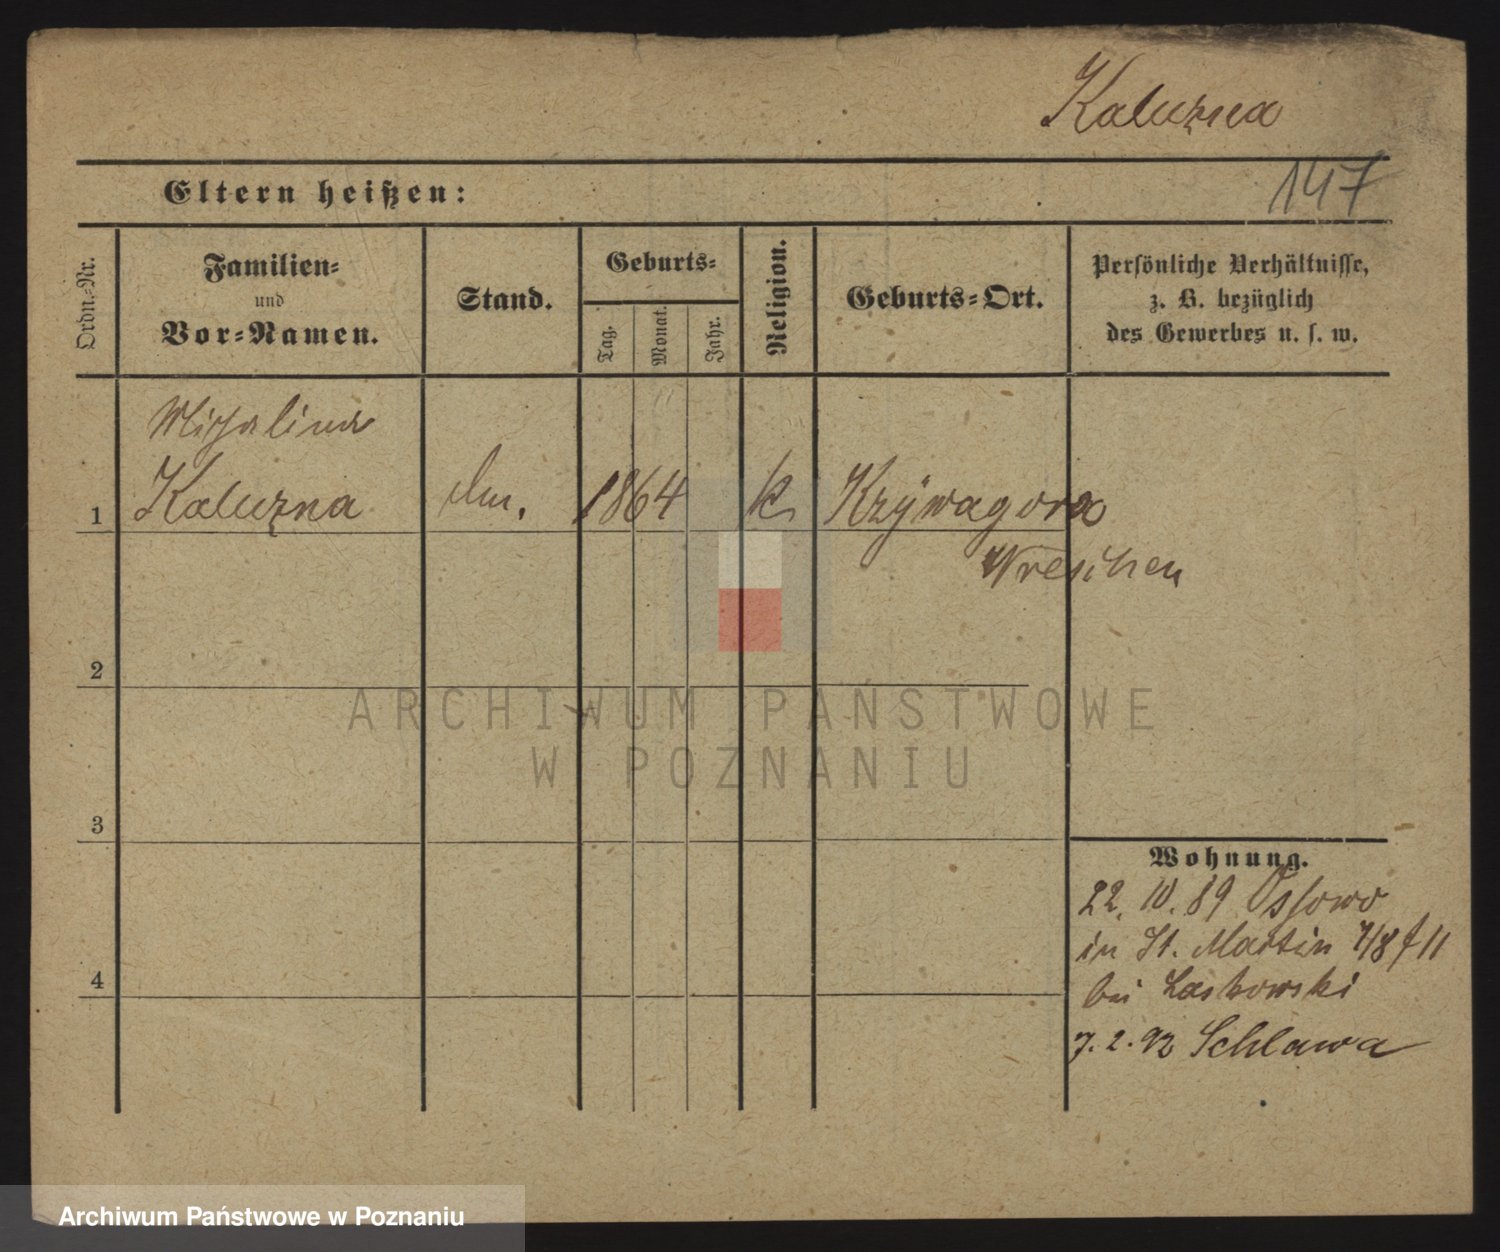 Kaluzna
147
Eltern heißen:
Ordn.-Nr.
Familien-
und
Vor-Namen.
Stand.
Geburts-
Tag.
Monat.
Jahr.
Religion.
Geburts-Ort.
Persönliche Verhältnisse,
z. B. bezüglich
des Gewerbes u. s. w.
Michalina
1 Kaluzna 1864 k Krzywagora
Wreschen
2
ARCHIWUM PAŃSTWOWE
W POZNANIU
3
Wohnung.
22. 10. 89 Ossowo
in St. Martin 7/8 f 11
bei Laskowski
4
7. 2. 92 Schlawa
Archiwum Państwowe w Poznaniu